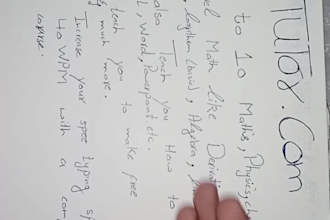 TUTOR.Com
to 10 Maths, Physics, ch
el Math like
(basic), Algebra,
Teach you How to
also
, Word, Powerpoint etc.
teach you to make free
much more.
Increase your spee typing sp
40 WPM with a com
course.